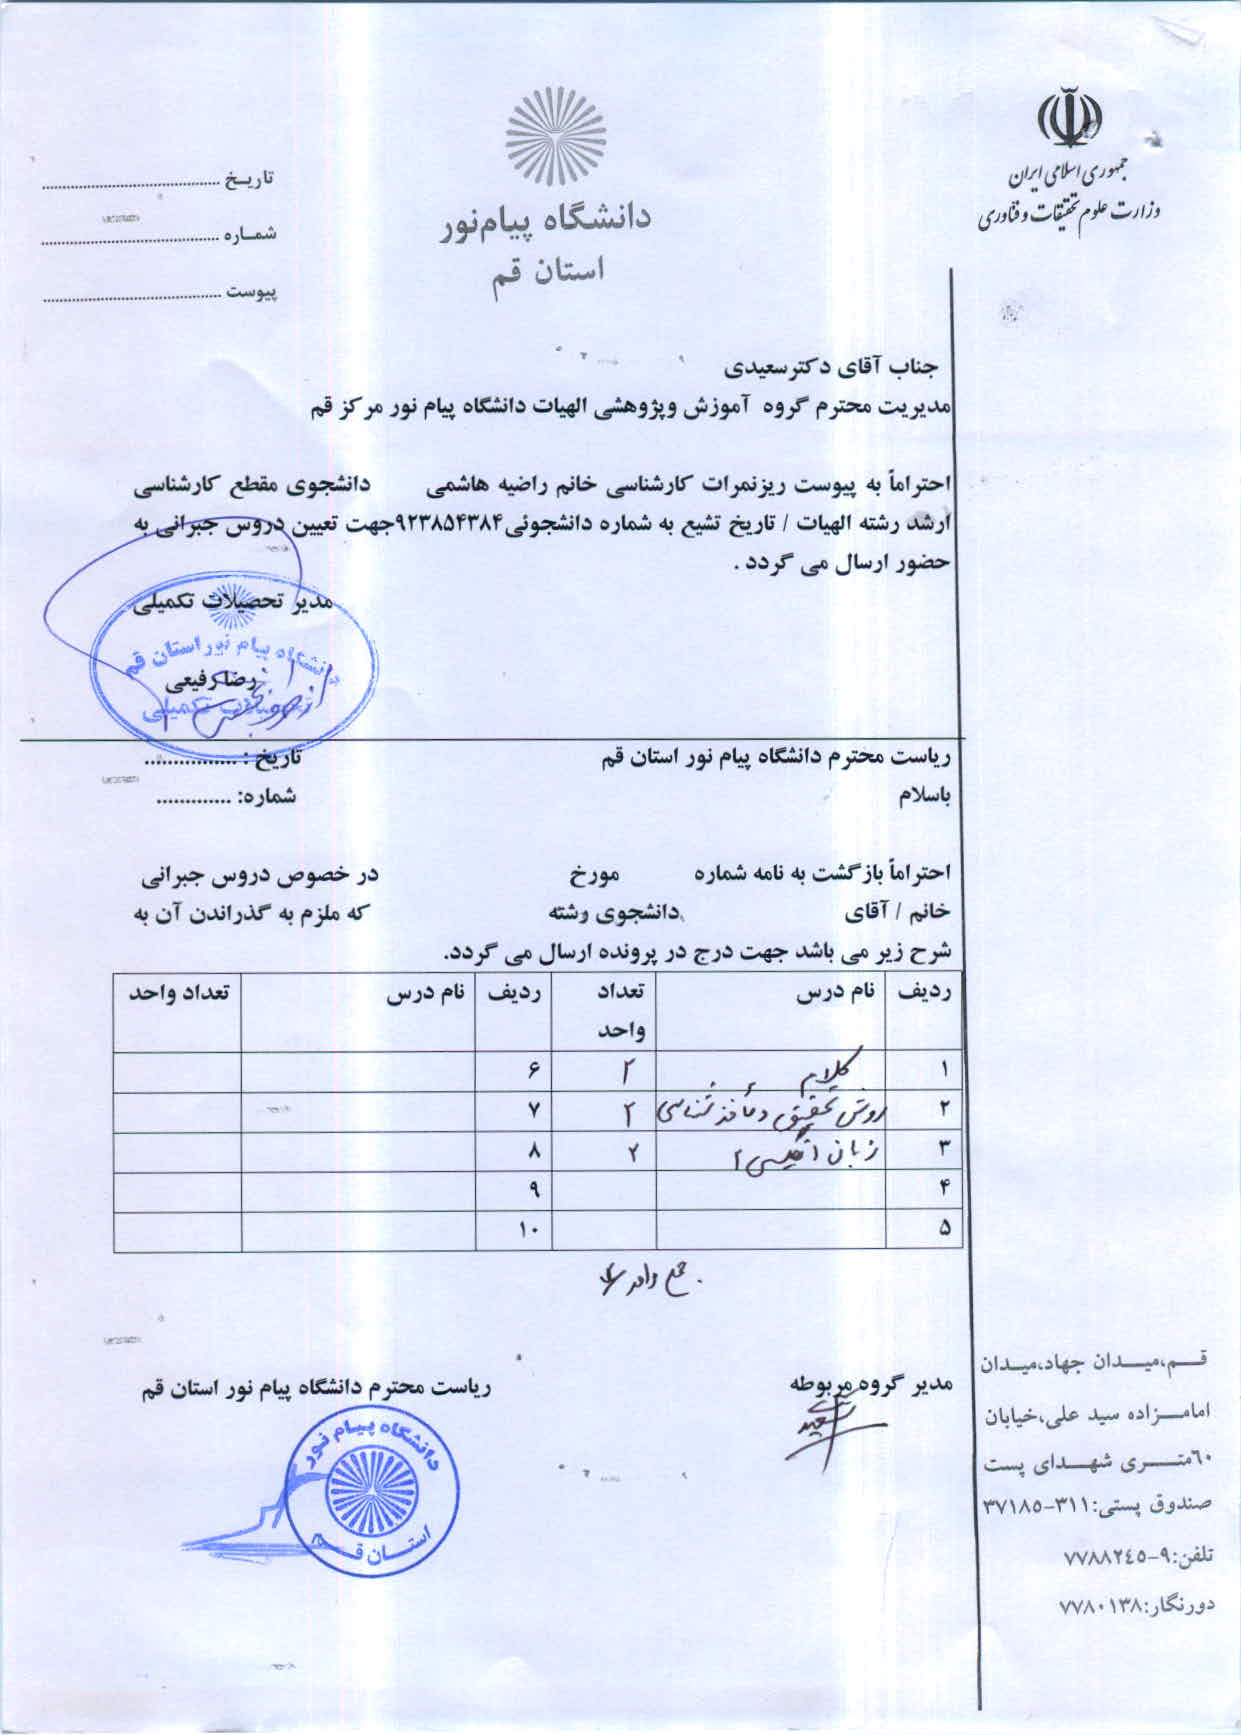 جمهوری اسلامی ایران
وزارت علوم تحقیقات و فناوری
دانشگاه پیام‌نور
استان قم
تاریـخ ........................................
شمـاره ........................................
پیوست ........................................
جناب آقای دکترسعیدی
مدیریت محترم گروه آموزش وپژوهشی الهیات دانشگاه پیام نور مرکز قم
احتراماً به پیوست ریزنمرات کارشناسی خانم راضیه هاشمی دانشجوی مقطع کارشناسی
ارشد رشته الهیات / تاریخ تشیع به شماره دانشجوئی۹۲۳۸۵۴۳۸۴جهت تعیین دروس جبرانی به
حضور ارسال می گردد .
مدیر تحصیلات تکمیلی
دانشگاه پیام نور استان قم
رضا رفیعی
تحصیلات تکمیلی
ریاست محترم دانشگاه پیام نور استان قم
تاریخ : ................
باسلام
شماره: .............
احتراماً بازگشت به نامه شماره مورخ در خصوص دروس جبرانی
خانم / آقای دانشجوی رشته که ملزم به گذراندن آن به
شرح زیر می باشد جهت درج در پرونده ارسال می گردد.
ردیف نام درس تعداد واحد ردیف نام درس تعداد واحد
۱ کلام ۲ ۶
۲ روش تحقیق و مأخذ شناسی ۲ ۷
۳ زبان انگلیسی ۲ ۸
۴ ۹
۵ ۱۰
جمع واحد ۶
مدیر گروه مربوطه
سعیدی
ریاست محترم دانشگاه پیام نور استان قم
دانشگاه پیام نور
استــان قــم
قــم،میــدان جهاد،میـدان
امامــزاده سید علی،خیابان
٦٠متــری شهــدای پست
صندوق پستی:۳۱۱-۳۷۱۸۵
تلفن:۹-۷۷۸۸۲٤٥
دورنگار:۷۷۸۰۱۳۸